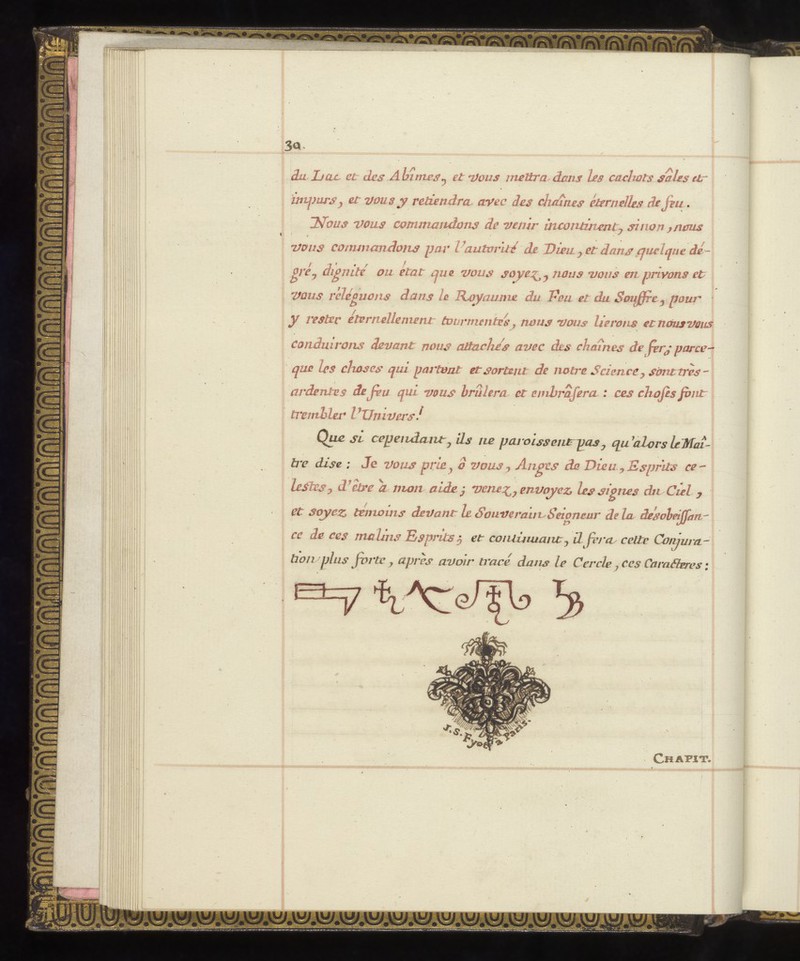 30.
du Lac et des Abîmes, et vous mettra dans les cachots sâles et
impurs, et vous y retiendra avec des chaînes éternelles de feu.
Nous vous commandons de venir incontinent, sinon, nous
vous commandons par l'autorité de Dieu, et dans quelque dé-
gré, dignité ou état que vous soyez, nous vous en privons et
vous réléguons dans le Royaume du Feu et du Souffre, pour
y rester éternellement tourmentés, nous vous lierons et nous vous
conduirons devant nous attachés avec des chaînes de fer; parce-
que les choses qui partent et sortent de notre Science, sont très-
ardentes de feu qui vous brûlera et embrâsera : ces choses font
trembler l'Univers!
Que si cependant, ils ne paroissent pas, qu'alors le Maî-
tre dise : Je vous prie, ô vous, Anges de Dieu, Esprits ce-
lestes, d'être à mon aide; venez, envoyez les signes du Ciel,
et soyez témoins devant le Souverain Seigneur de la désobeissan-
ce de ces malins Esprits; et continuant, il fera cette Conjura-
tion plus forte, après avoir tracé dans le Cercle, ces Caracteres :
J. S. Fyot à Paris.
CHAPIT.